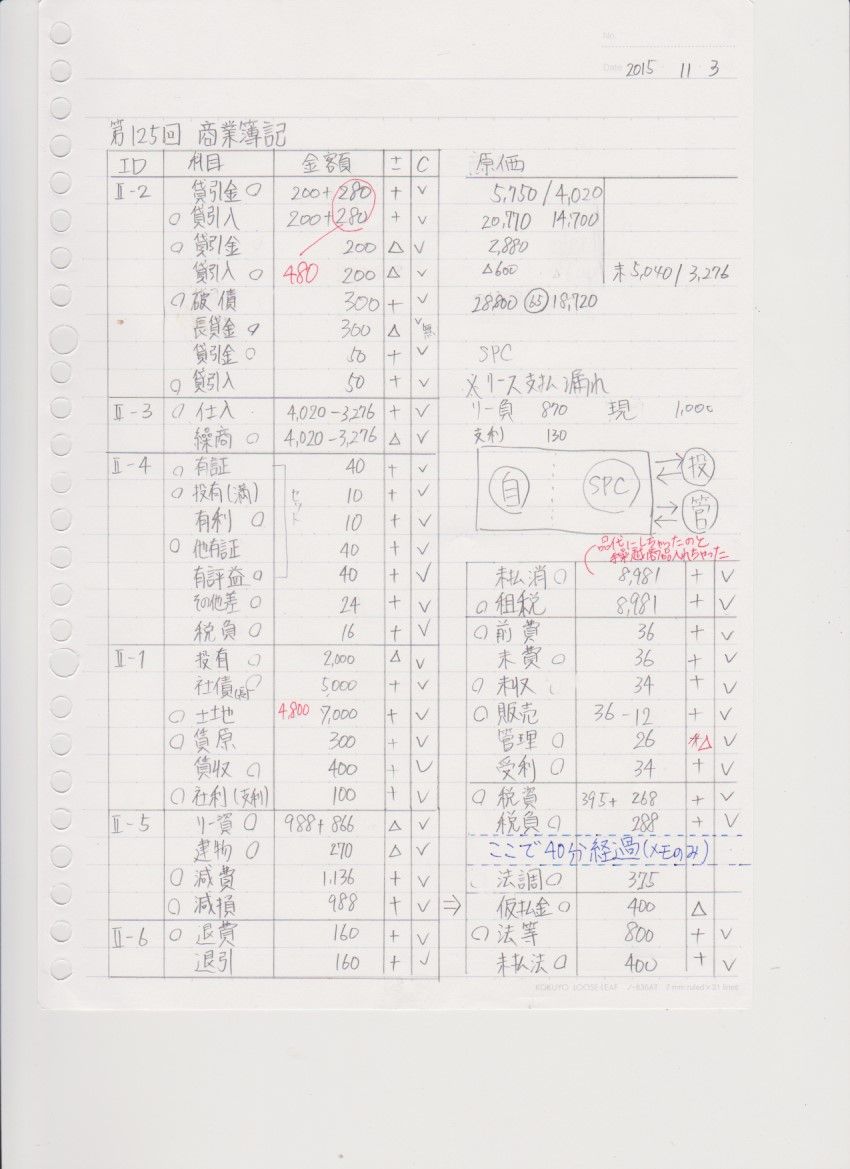 No.
Date 2015 11 3
第125回 商業簿記
ID 科目 金額 ± C
Ⅱ-2 貸引金○ 200+280 + ∨
○貸引入 200+280 + ∨
○貸引金 200 △ ∨
貸引入○ 480 200 △ ∨
○破債 300 + ∨
長貸金○ 300 △ ∨無
貸引金○ 50 + ∨
○貸引入 50 + ∨
Ⅱ-3 ○仕入 4,020-3,276 + ∨
繰商○ 4,020-3,276 △ ∨
Ⅱ-4 ○有証 40 + ∨
○投有(満) 10 + ∨
有利○ 10 + ∨
セット
○他有証 40 + ∨
有評益○ 40 + ∨
その他差○ 24 + ∨
税負○ 16 + ∨
Ⅱ-1 投有○ 2,000 △ ∨
社債○ 5,000 + ∨
○土地 4,800 7,000 + ∨
○賃原 300 + ∨
賃収○ 400 + ∨
○社利(支利) 100 + ∨
Ⅱ-5 リー資○ 988+866 △ ∨
建物○ 270 △ ∨
○減費 1,136 + ∨
○減損 988 + ∨ ⇒
Ⅱ-6 ○退費 160 + ∨
退引 160 + ∨
原価
5,750/4,020
20,770 14,700
2,880
△600 末5,040/3,276
28,800 65 18,720
SPC
※リース支払漏れ
リー負 870 現 1,000
支利 130
自 SPC 投
管
品代にしちゃったのと
繰越商品入れちゃった
未払消○ 8,981 + ∨
○租税 8,981 + ∨
○前費 36 + ∨
未費○ 36 + ∨
○未収 34 + ∨
○販売 36-12 + ∨
管理○ 26 △ ∨
受利○ 34 + ∨
○税資 395+268 + ∨
税負○ 288 + ∨
ここで40分経過(メモのみ)
法調○ 375
仮払金○ 400 △
○法等 800 + ∨
未払法○ 400 + ∨
KOKUYO LOOSE-LEAF ノ-836AT 7 mm ruled×31 lines